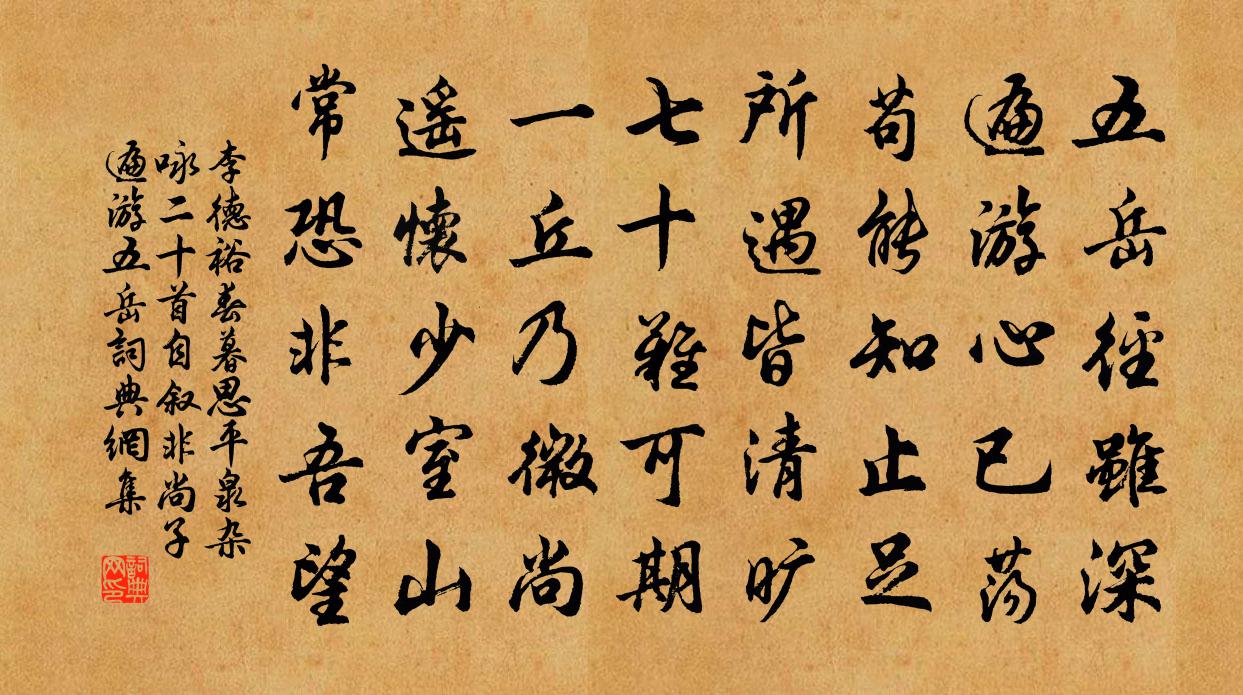 五岳径雖深
遍游心已荡
苟能知止足
所遇皆清旷
七十難可期
一丘乃微尚
遥懷少室山
常恐非吾望
李德裕春暮思平泉杂
咏二十首自叙非尚子
遍游五岳詞典網集
詞典网印